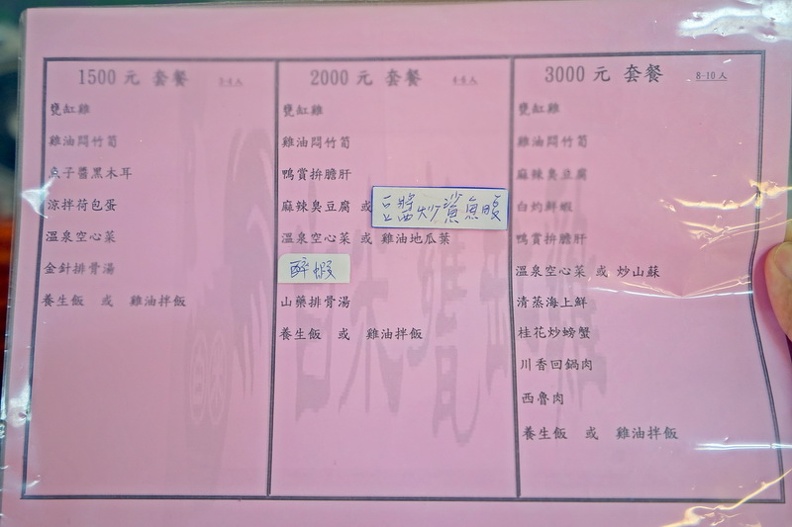 1500 元 套餐 3-4 人
甕缸雞
雞油悶竹筍
魚子醬黑木耳
涼拌荷包蛋
溫泉空心菜
金針排骨湯
養生飯 或 雞油拌飯
2000 元 套餐 4-6 人
甕缸雞
雞油悶竹筍
鴨賞拚膽肝
麻辣臭豆腐 或 豆醬炒鯊魚腹
溫泉空心菜 或 雞油地瓜葉
醉蝦
山藥排骨湯
養生飯 或 雞油拌飯
3000 元 套餐 8-10 人
甕缸雞
雞油悶竹筍
麻辣臭豆腐
白灼鮮蝦
鴨賞拚膽肝
溫泉空心菜 或 炒山蘇
清蒸海上鮮
桂花炒螃蟹
川香回鍋肉
西魯肉
養生飯 或 雞油拌飯